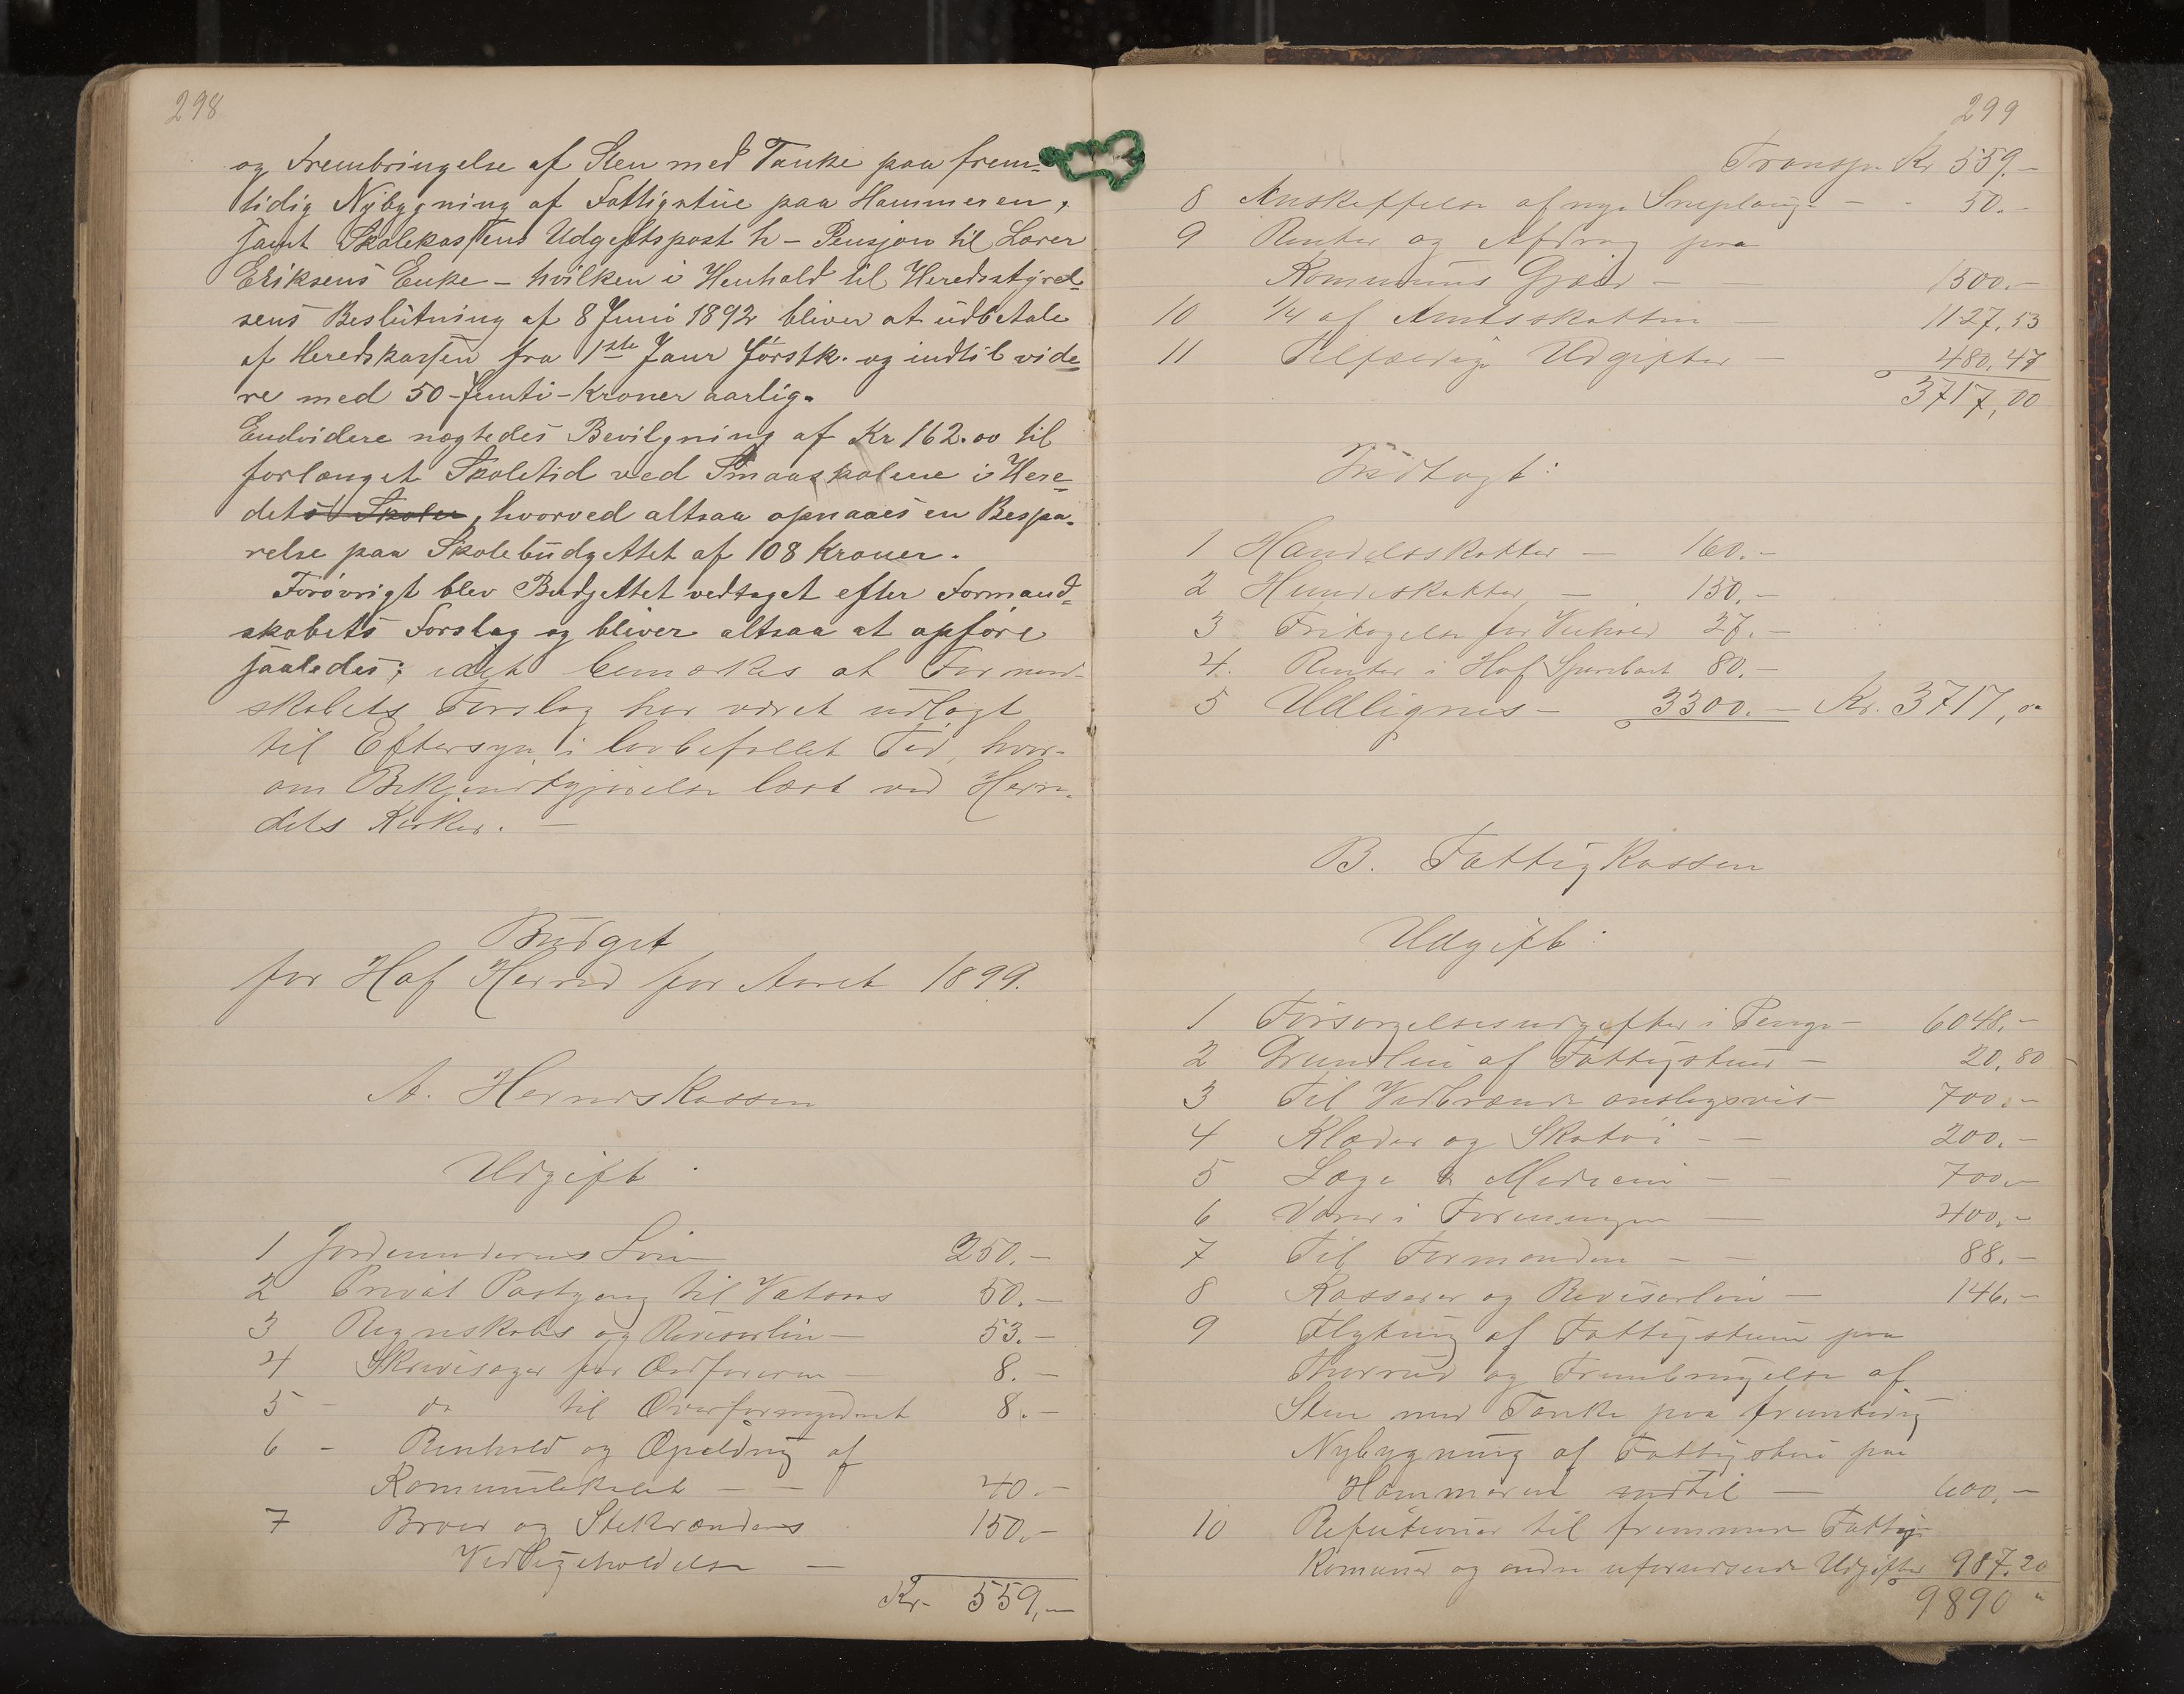 298
og Frembringelse af Sten med Tanke paa frem-
tidig Nybygning af Fattigstue paa Hammeren,
samt Skolekassens Udgiftspost h - Pensjon til Lærer
Eriksens Enke - hvilken i Henhold til Heredsstyrel-
sens Beslutning af 8 Juni 1892 bliver at udbetale
af Heredskassen fra 1ste Janr førstk. og indtil vide-
re med 50 - femti - Kroner aarlig.
Endvidere nægtedes Bevilgning af Kr 162.00 til
forlænget Skoletid ved Smaaskolene i Here-
dets Skoler, hvorved altsaa opnaaes en Bespa-
relse paa Skolebudgettet af 108 Kroner.
Forøvrigt blev Budgettet vedtaget efter Formand-
skabets Forslag og bliver altsaa at opføre
saaledes; idet bemærkes at Formand-
skabets Forslag har været udlagt
til Eftersyn i lovbefallet Tid, hvor-
om Bekjendtgjørelse læst ved Herre-
dets Kirker. —
Budget
for Hof Herred for Aaret 1899.
A. Herredskassen
Udgift:
1 Jordemoderens Løn 250.-
2 Privat Postgang til Vatnaas 50.-
3 Regnskabs og Revisorløn - 53.-
4 Skrivesager for Ordføreren - 8.-
5 - do til Overformynderiet 8.-
6 - Renhold og Opeldning af
Komunelokalet - - 40.-
7 Broer og Stikrænders 150.-
Vedligeholdelse -
Kr. 559,-
299
Transp. Kr 559.-
8 Anskaffelse af nye Sneplouge - - 50.-
9 Renter og Afdrag paa
Kommunens Gjæld - 1500.-
10 1/4 af Amtsskatten - 1127,53
11 Tilfældige Udgifter - 480,47
3717,00
Indtægt:
1 Handelsskatter - 160.-
2 Hundeskatter - 150.-
3 Fritagelse for Veihold 27.-
4. Renter i Hof Sparebank 80.-
5 Udlignes - 3300.- Kr. 3717,00
B. Fattigkassen
Udgift:
1 Forsørgelsesudgifter i Penge - 6048.-
2 Grundleie af Fattigstuer - 20,80
3 Til Vedbrænde anslagsvis - 700.-
4 Klæder og Skotøi - - 200.-
5 Læge & Medicin - - 700.-
6 Varer i Foreningen - 400.-
7 Til Formanden - - 88.-
8 Kasserer og Revisorløn - 146.-
9 Flytning af Fattigstuen paa
Thorrud og Frembringelse af
Sten med Tanke paa fremtidig
Nybygning af Fattigstue paa
Hammeren indtil - 600,-
10 Refutioner til fremmede Fattig-
Komuner og andre uforudseede Udgifter 987.20
9890 "